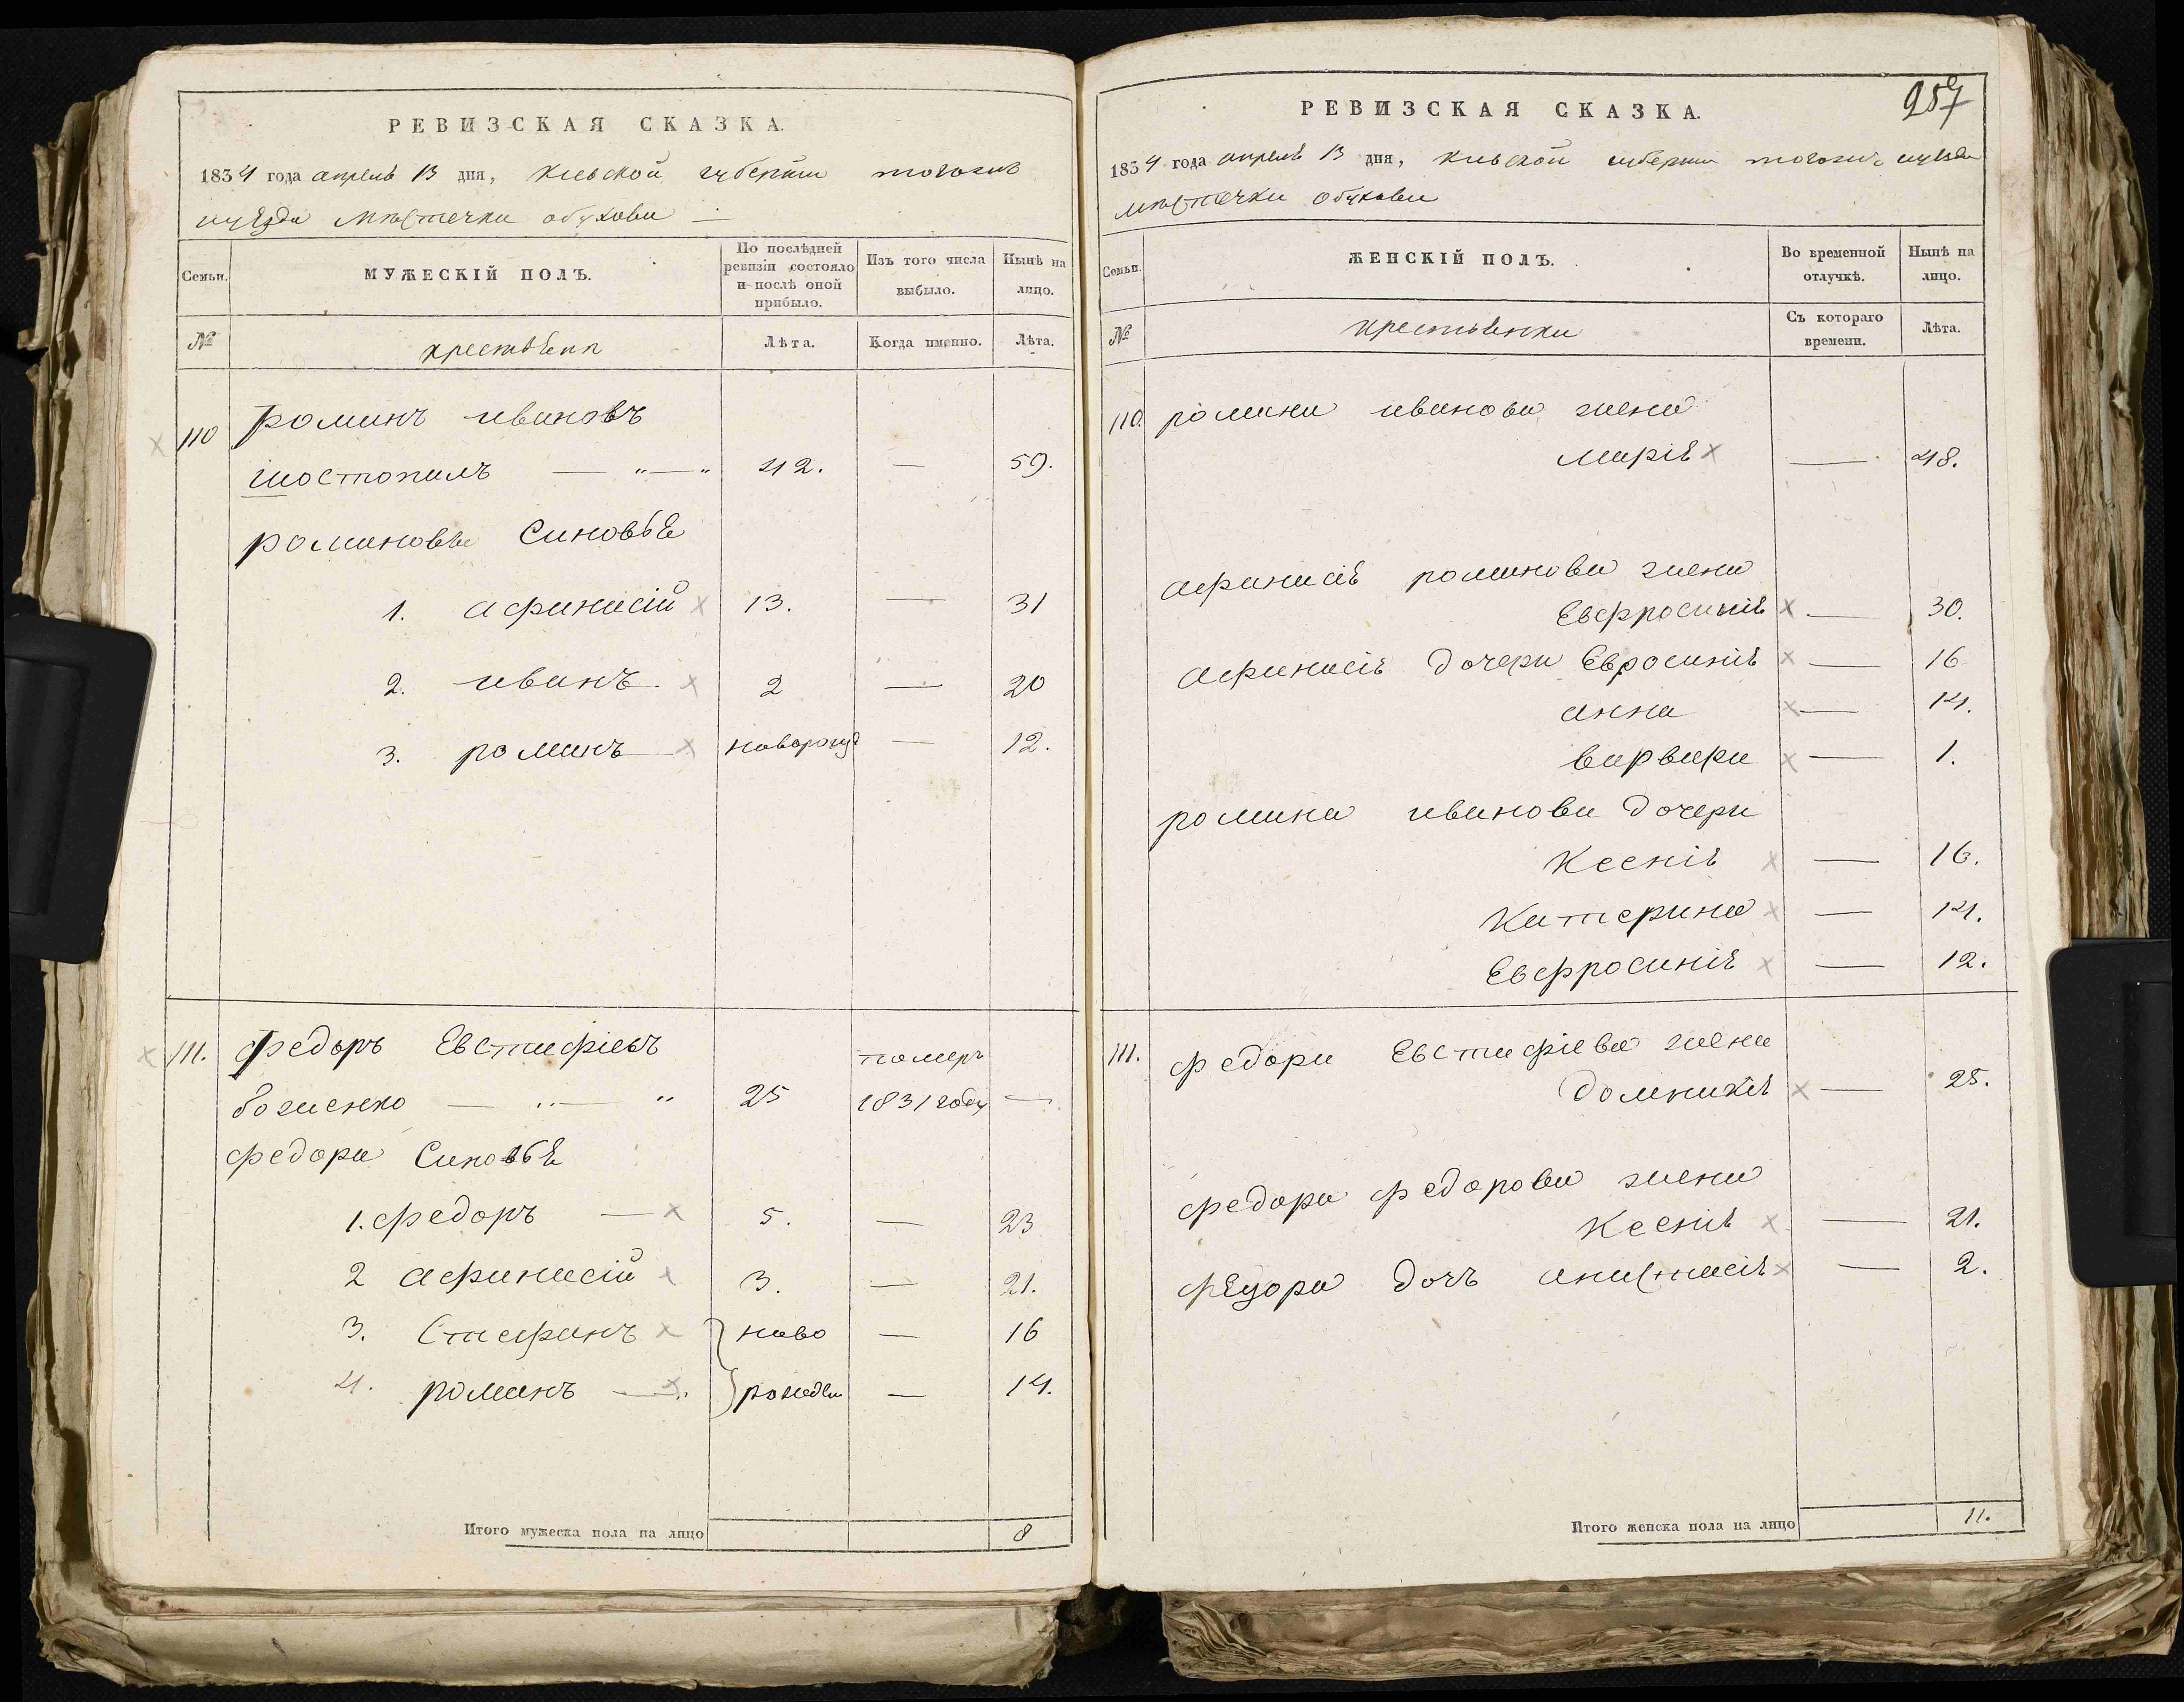 РЕВИЗСКАЯ СКАЗКА.
1834 года апреля 13 дня, киевской губернии тогожъ
уезда местечка обухова —
Семьи.
МУЖЕСКІЙ ПОЛЪ.
По послѣдней ревизіи состояло и послѣ оной прибыло.
Изъ того числа выбыло.
Нынѣ на лицо.
№
крестьяни
Лѣта.
Когда именно.
Лѣта.
110 романъ ивановъ
шостопалъ — „ — „ 42. — 59.
романовы Синовья
1. афанасій x 13. — 31
2. иванъ. x 2 — 20
3. романъ x новорожд — 12.
111. федоръ Евстафіевъ
боженко — „ — „ 25 померъ 1831 году —
федора Синовья
1. федоръ — x 5. — 23
2 афанасій x 3. — 21.
3. Стефанъ x } ново — 16
4. романъ — x „ } рожден — 14.
Итого мужеска пола на лицо 8
257
РЕВИЗСКАЯ СКАЗКА.
1834 года апреля 13 дня, киевской губернии тогожъ уезда
местечка обухова
Семьи.
ЖЕНСКІЙ ПОЛЪ.
Во временной отлучкѣ.
Нынѣ на лицо.
№
крестьянки
Съ котораго времени.
Лѣта.
110. романа иванова жена
марія x — 48.
афанасія романова жена
Евфросинія x — 30.
афанасія дочери Евросинія x — 16
анна x — 14.
варвара x — 1.
романа иванова дочери
Ксенія x — 16.
Катерина x — 14.
Евфросинія x — 12.
111. федора Евстафіева жена
домникія x — 25.
федора федорова жена
Ксенія x — 21.
федора дочъ анастасія x — 2.
Итого женска пола на лицо 11.